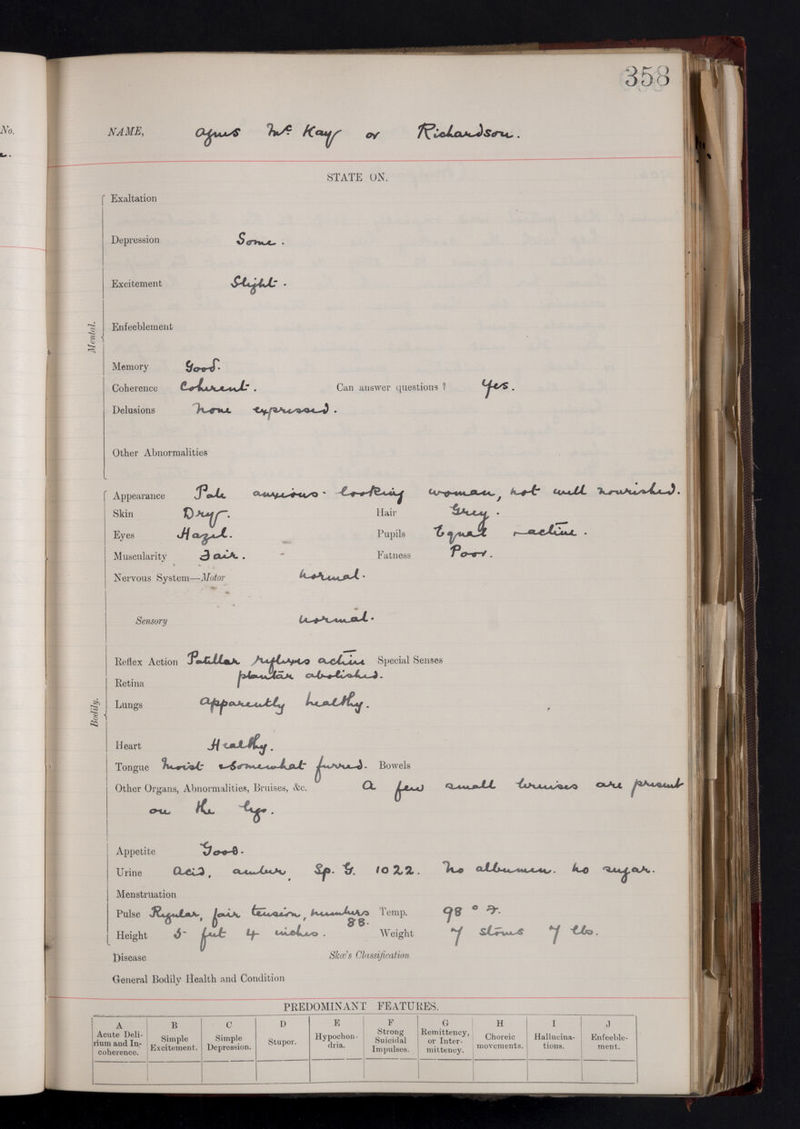 358
No.
NAME, Agnes McKay or Richardson.
STATE ON.
Mental.
Exaltation
Depression Some.
Excitement Slight.
Enfeeblement
Memory Good.
Coherence Coherent. Can answer questions? Yes.
Delusions None expressed.
Other Abnormalities
Bodily.
Appearance Pale anxious-looking woman, not well nourished.
Skin Dry. Hair Grey.
Eyes Hazel. Pupils Equal & active.
Muscularity Fair. Fatness Poor.
Nervous System—Motor Normal.
Sensory Normal.
Reflex Action Patellar reflexes active Special Senses
plantar abolished.
Retina
Lungs Apparently healthy.
Heart Healthy.
Tongue Moist & somewhat furred. Bowels
Other Organs, Abnormalities, Bruises, &c. A few small bruises are present
on the legs.
Appetite Good.
Urine Acid, amber, Sp. G. 1022. No albumen. No sugar.
Menstruation
Pulse Regular, fair tension, numbers Temp. 98° F.
88.
Height 5 feet 4 inches. Weight 7 stones 7 lbs.
Disease Skae's Classification
General Bodily Health and Condition
PREDOMINANT FEATURES.
A B C D E F G H I J
Acute Delirium and Incoherence. Simple Excitement. Simple Depression. Stupor. Hypochondria. Strong Suicidal Impulses. Remittency, or Intermittency. Choreic movements. Hallucinations. Enfeeblement.